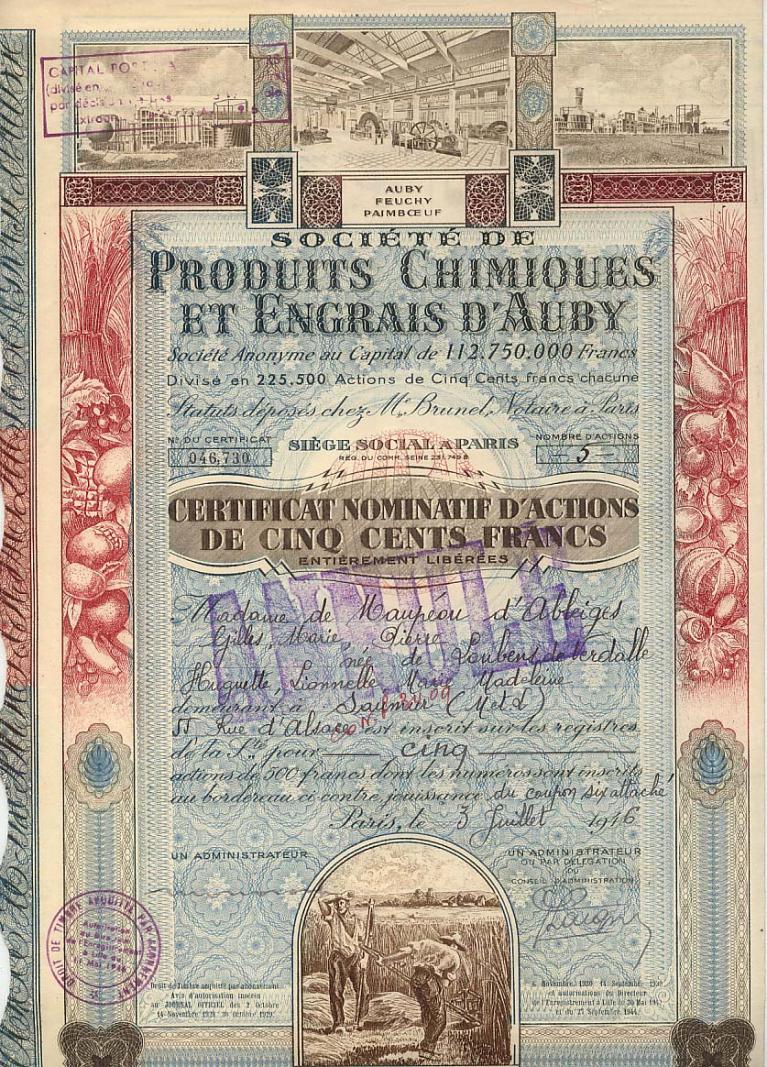 CAPITAL PORT
(divisé en
par décision
extraor
AUBY
FEUCHY
PAIMBŒUF
SOCIÉTÉ DE
PRODUITS CHIMIQUES
ET ENGRAIS D'AUBY
Société Anonyme au Capital de 112.750.000 Francs
Divisé en 225.500 Actions de Cinq Cents francs chacune
Statuts déposés chez Me Brunel, Notaire à Paris
N° DU CERTIFICAT
046,730
SIÈGE SOCIAL A PARIS
REG. DU COMM. SEINE 231.740 B
NOMBRE D'ACTIONS
5
CERTIFICAT NOMINATIF D'ACTIONS
DE CINQ CENTS FRANCS
ENTIÈREMENT LIBÉRÉES
ANNULÉ
Madame de Maupéou d'Ableiges
Gilles, Marie, Pierre
née de Loubens de Verdalle
Huguette, Lionnelle, Marie Madeleine
demeurant à Saumur (M et L)
55 Rue d'Alsace est inscrit sur les registres
de la Sté pour cinq
actions de 500 francs dont les numéros sont inscrits
au bordereau ci-contre, jouissance du coupon six attaché
Paris, le 3 Juillet 1946
UN ADMINISTRATEUR
UN ADMINISTRATEUR
OU PAR DÉLÉGATION
DU
CONSEIL D'ADMINISTRATION
DROIT DE TIMBRE ACQUITTÉ PAR ABONNEMENT
Autorisation
du Directeur
de l'Enregistrement
à Lille du
Mai 1946
Droit de Timbre acquitté par abonnement
Avis d'autorisation inséré
au JOURNAL OFFICIEL des 2 Octobre
14 Novembre 1928, 30 Octobre 1929,
6 Novembre 1930, 14 Septembre
et autorisations du Directeur
de l'Enregistrement à Lille du 30 Mai
et du 27 Septembre 1944.